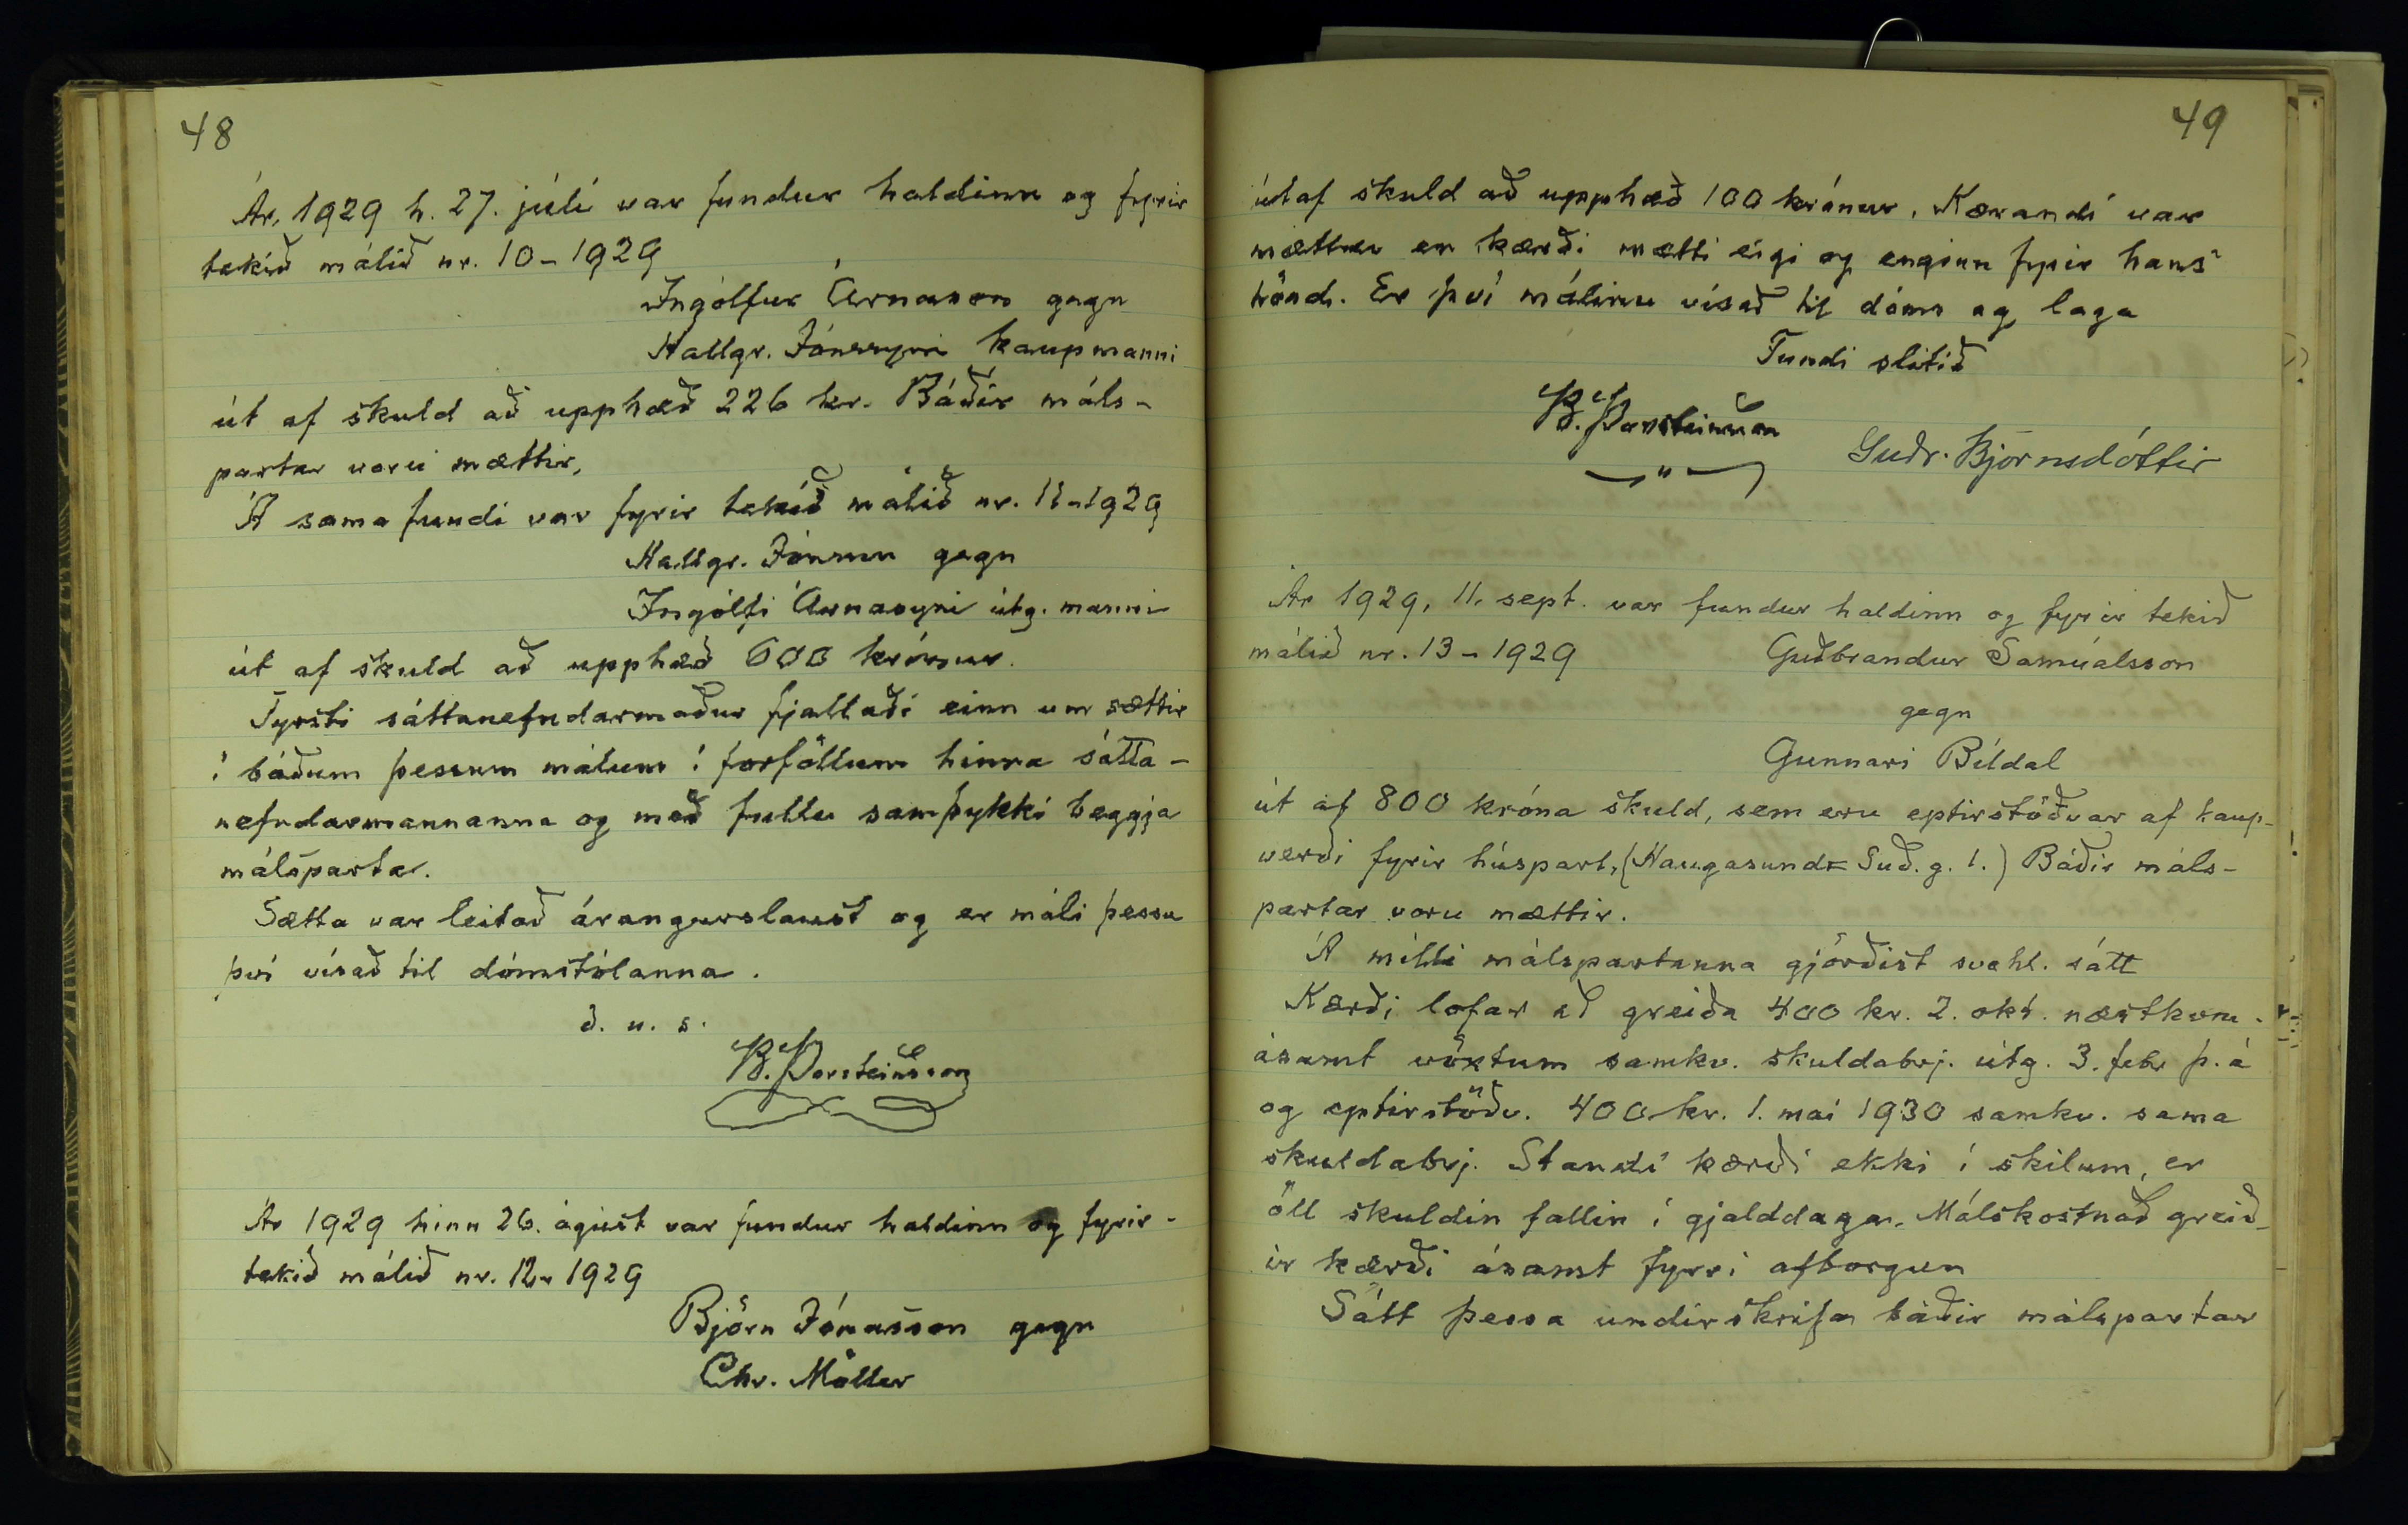 48
Ár, 1929 h. 27. júlí var fundur haldinn og fyrir
tekið málið nr. 10-1929
Ingólfur Árnason gegn
Hallgr. Jónssyni kaupmanni
út af skuld að upphæð 226 kr. Báðir máls-
partar voru mættir.
Á sama fundi var fyrir tekið málið nr. 11-1929
Hallgr. Jónsson gegn
Ingólfi Árnasyni útg. manni
út af skuld að upphæð 600 krónur.
Fyrsti sáttanefndarmaður fjallaði einn um sættir
í báðum þessum málum í forföllum hinna sátta-
nefndarmannanna og með fullu samþykki beggja
málsparta.
Sætta var leitað árangurslaust og er máli þessu
því vísað til dómstólanna.
D. u. s.
B. Þorsteinsson
Ár 1929 hinn 26. ágúst var fundur haldinn og fyrir-
tekið málið nr. 12-1929
Björn Jónasson gegn
Chr. Möller
49
útaf skuld að upphæð 100 krónur. Kærandi var
mættur en kærði mætti eigi og enginn fyrir hans
hönd. Er því málinu vísað til dóms og laga
Fundi slitið
B. Þorsteinsson
—"—
Guðr. Björnsdóttir
Ár 1929, 11. sept. var fundur haldinn og fyrir tekið
málið nr. 13-1929 Guðbrandur Samúalsson
gegn
Gunnari Bíldal
út af 800 króna skuld, sem eru eptirstöðvar af kaup-
verði fyrir húspart, (Haugasund= Suð.g. 1.) Báðir máls-
partar voru mættir.
Á milli málspartanna gjörðist svohl. sátt
Kærði lofar að greiða 400 kr. 2. okt. næstkom.
ásamt vöxtum samkv. skuldabrj. útg. 3. febr þ. á
og eptirstöðv. 400 kr. 1. maí 1930 samkv. sama
skuldabrj. Standi kærði ekki í skilum, er
öll skuldin fallin í gjalddaga. Málskostnað greið-
ir kærði ásamt fyrri afborgun
Sátt þessa undirskrifa báðir málspartar